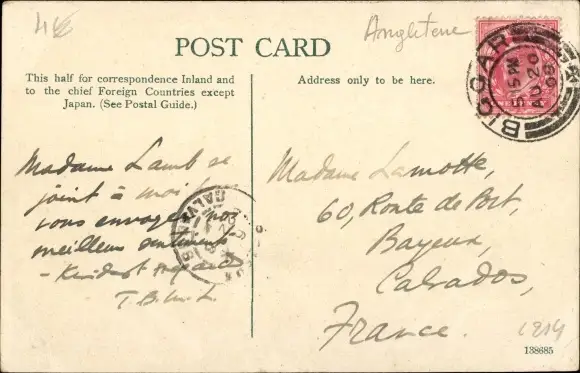 Angleterre
POST CARD
This half for correspondence Inland and
to the chief Foreign Countries except
Japan. (See Postal Guide.)
Address only to be here.
BIGGAR
5 PM
AU 20
09
Madame Lamb se
joint à moi
vous envoyer nos
meilleurs sentiments
- Kindest regards
T.B.
CALVADOS
Madame Lamotte,
60, Route de Port,
Bayeux,
Calvados,
France.
138685